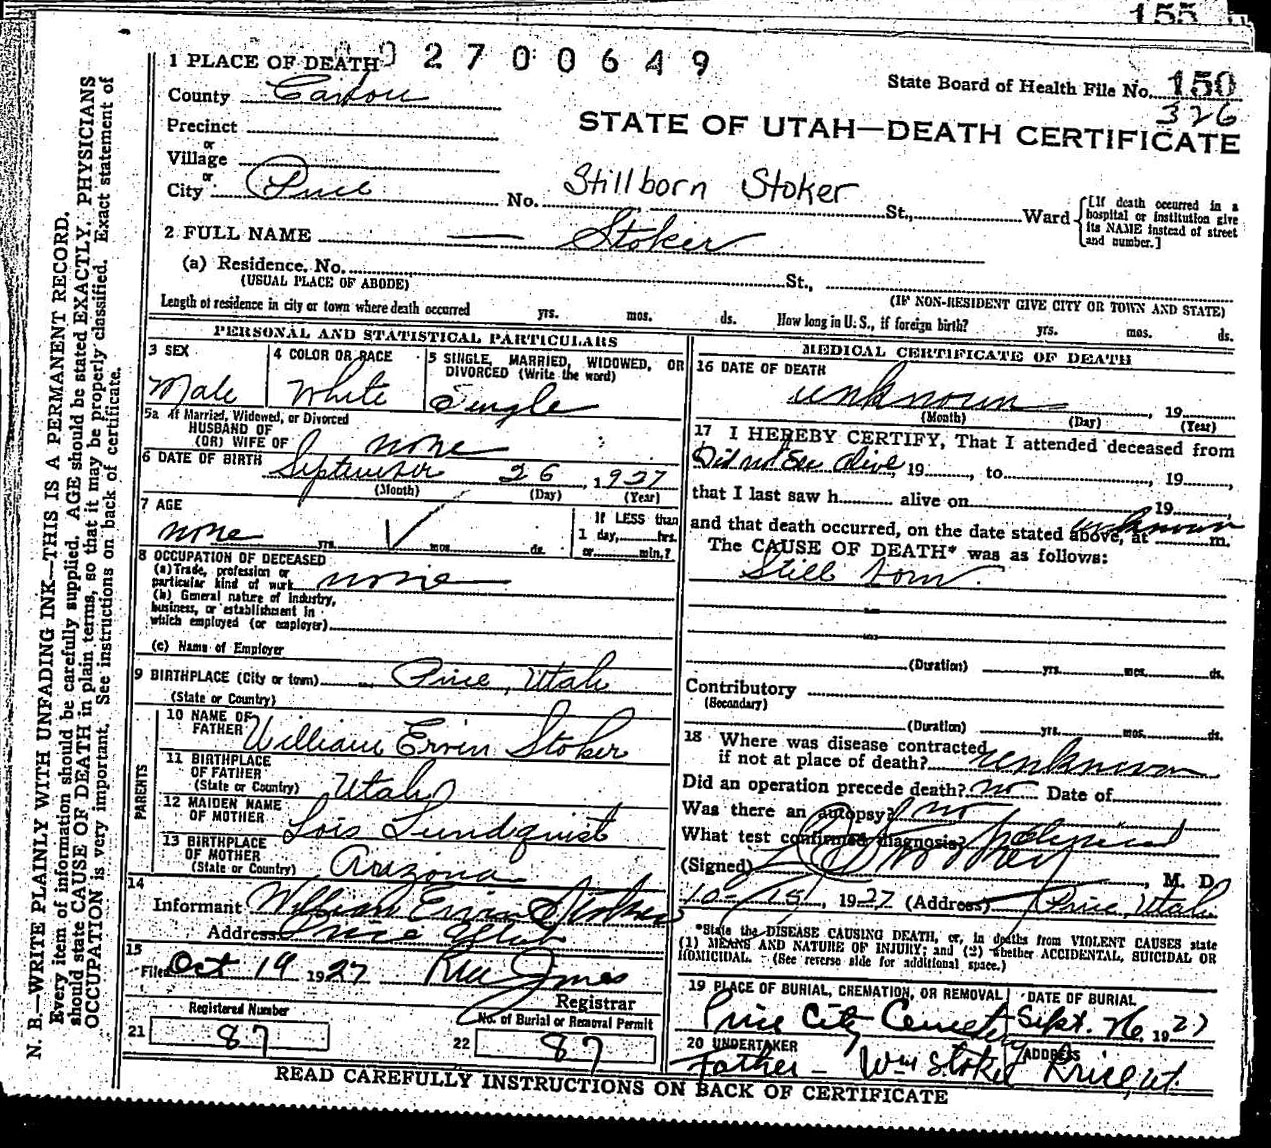 155
02700649
1 PLACE OF DEATH
State Board of Health File No. 150
326
County Carbon
STATE OF UTAH—DEATH CERTIFICATE
Precinct
or
Village
or
City Price
No. Stillborn Stoker St., Ward
[If death occurred in a hospital or institution give its NAME instead of street and number.]
2 FULL NAME — Stoker
(a) Residence. No. St.,
(USUAL PLACE OF ABODE)
(IF NON-RESIDENT GIVE CITY OR TOWN AND STATE)
Length of residence in city or town where death occurred yrs. mos. ds. How long in U. S., if foreign birth? yrs. mos. ds.
PERSONAL AND STATISTICAL PARTICULARS
3 SEX
Male
4 COLOR OR RACE
White
5 SINGLE, MARRIED, WIDOWED, OR
DIVORCED (Write the word)
Single
5a If Married, Widowed, or Divorced
HUSBAND OF
(OR) WIFE OF none
6 DATE OF BIRTH September 26, 1927
(Month) (Day) (Year)
7 AGE
none yrs. mos. ds.
If LESS than
1 day, hrs.
or min.?
8 OCCUPATION OF DECEASED
(a) Trade, profession or
particular kind of work none
(b) General nature of industry,
business, or establishment in
which employed (or employer)
(c) Name of Employer
9 BIRTHPLACE (City or town) Price, Utah
(State or Country)
PARENTS
10 NAME OF
FATHER William Ervin Stoker
11 BIRTHPLACE
OF FATHER
(State or Country) Utah
12 MAIDEN NAME
OF MOTHER Lois Lundquist
13 BIRTHPLACE
OF MOTHER
(State or Country) Arizona
14
Informant William Ervin Stoker
Address Price Utah
15
Filed Oct 19 1927
Registrar
21 Registered Number
87
22 No. of Burial or Removal Permit
87
MEDICAL CERTIFICATE OF DEATH
16 DATE OF DEATH
unknown, 19
(Month) (Day) (Year)
17 I HEREBY CERTIFY, That I attended deceased from
Did not See alive, 19, to, 19,
that I last saw h alive on, 19,
and that death occurred, on the date stated above, at unknown m.
The CAUSE OF DEATH* was as follows:
Still born
(Duration) yrs. mos. ds.
Contributory
(Secondary)
(Duration) yrs. mos. ds.
18 Where was disease contracted
if not at place of death? unknown
Did an operation precede death? no Date of
Was there an autopsy? no
What test confirmed diagnosis?
(Signed), M. D.
10-19, 1927 (Address) Price, Utah
*State the DISEASE CAUSING DEATH, or, in deaths from VIOLENT CAUSES state
(1) MEANS AND NATURE OF INJURY; and (2) whether ACCIDENTAL, SUICIDAL OR
HOMICIDAL. (See reverse side for additional space.)
19 PLACE OF BURIAL, CREMATION, OR REMOVAL
Price City Cemetery
DATE OF BURIAL
Sept. 26, 1927
20 UNDERTAKER
Father — Wm Stoker
ADDRESS
Price, Ut.
READ CAREFULLY INSTRUCTIONS ON BACK OF CERTIFICATE
N. B.—WRITE PLAINLY WITH UNFADING INK—THIS IS A PERMANENT RECORD.
Every item of information should be carefully supplied. AGE should be stated EXACTLY. PHYSICIANS
should state CAUSE OF DEATH in plain terms, so that it may be properly classified. Exact statement of
OCCUPATION is very important. See instructions on back of certificate.